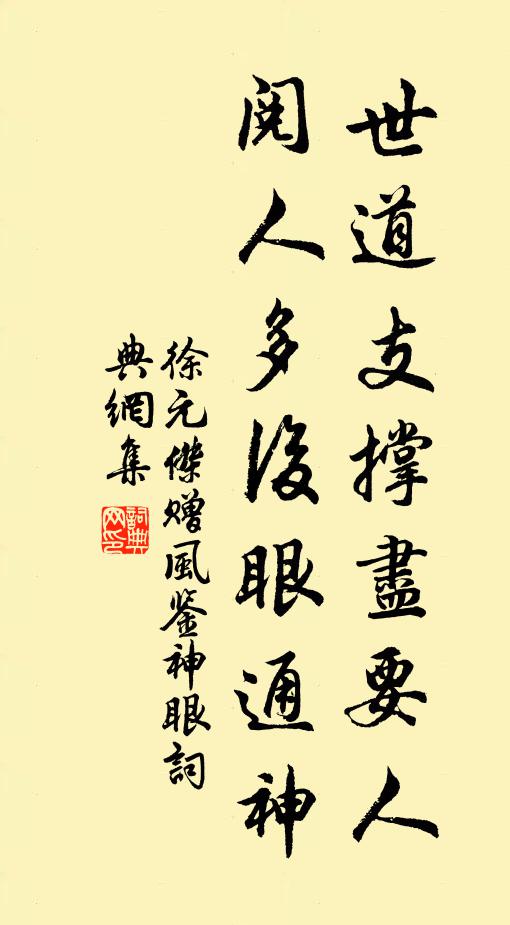 世道支撐盡要人
閱人多後眼通神
徐元傑贈風鉴神眼詞
典網集
詞典
网印